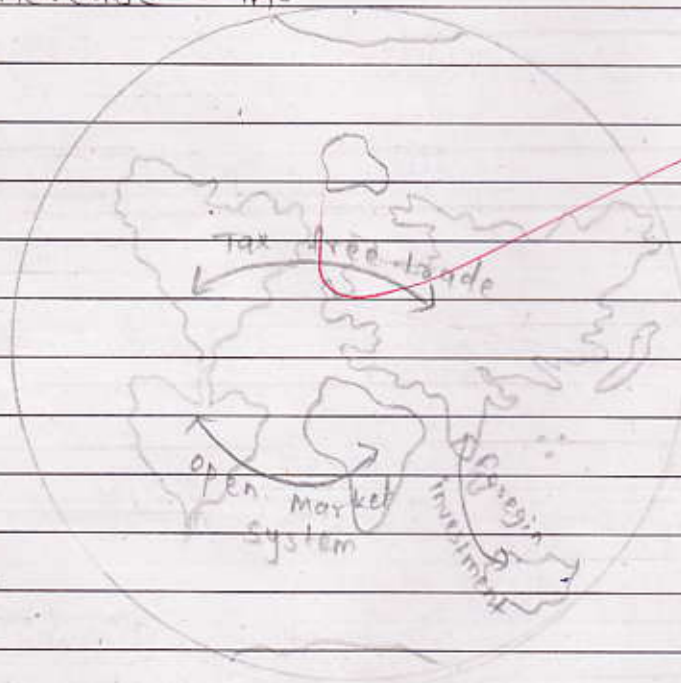 Tax free trade
open market
system
Foregin
investment